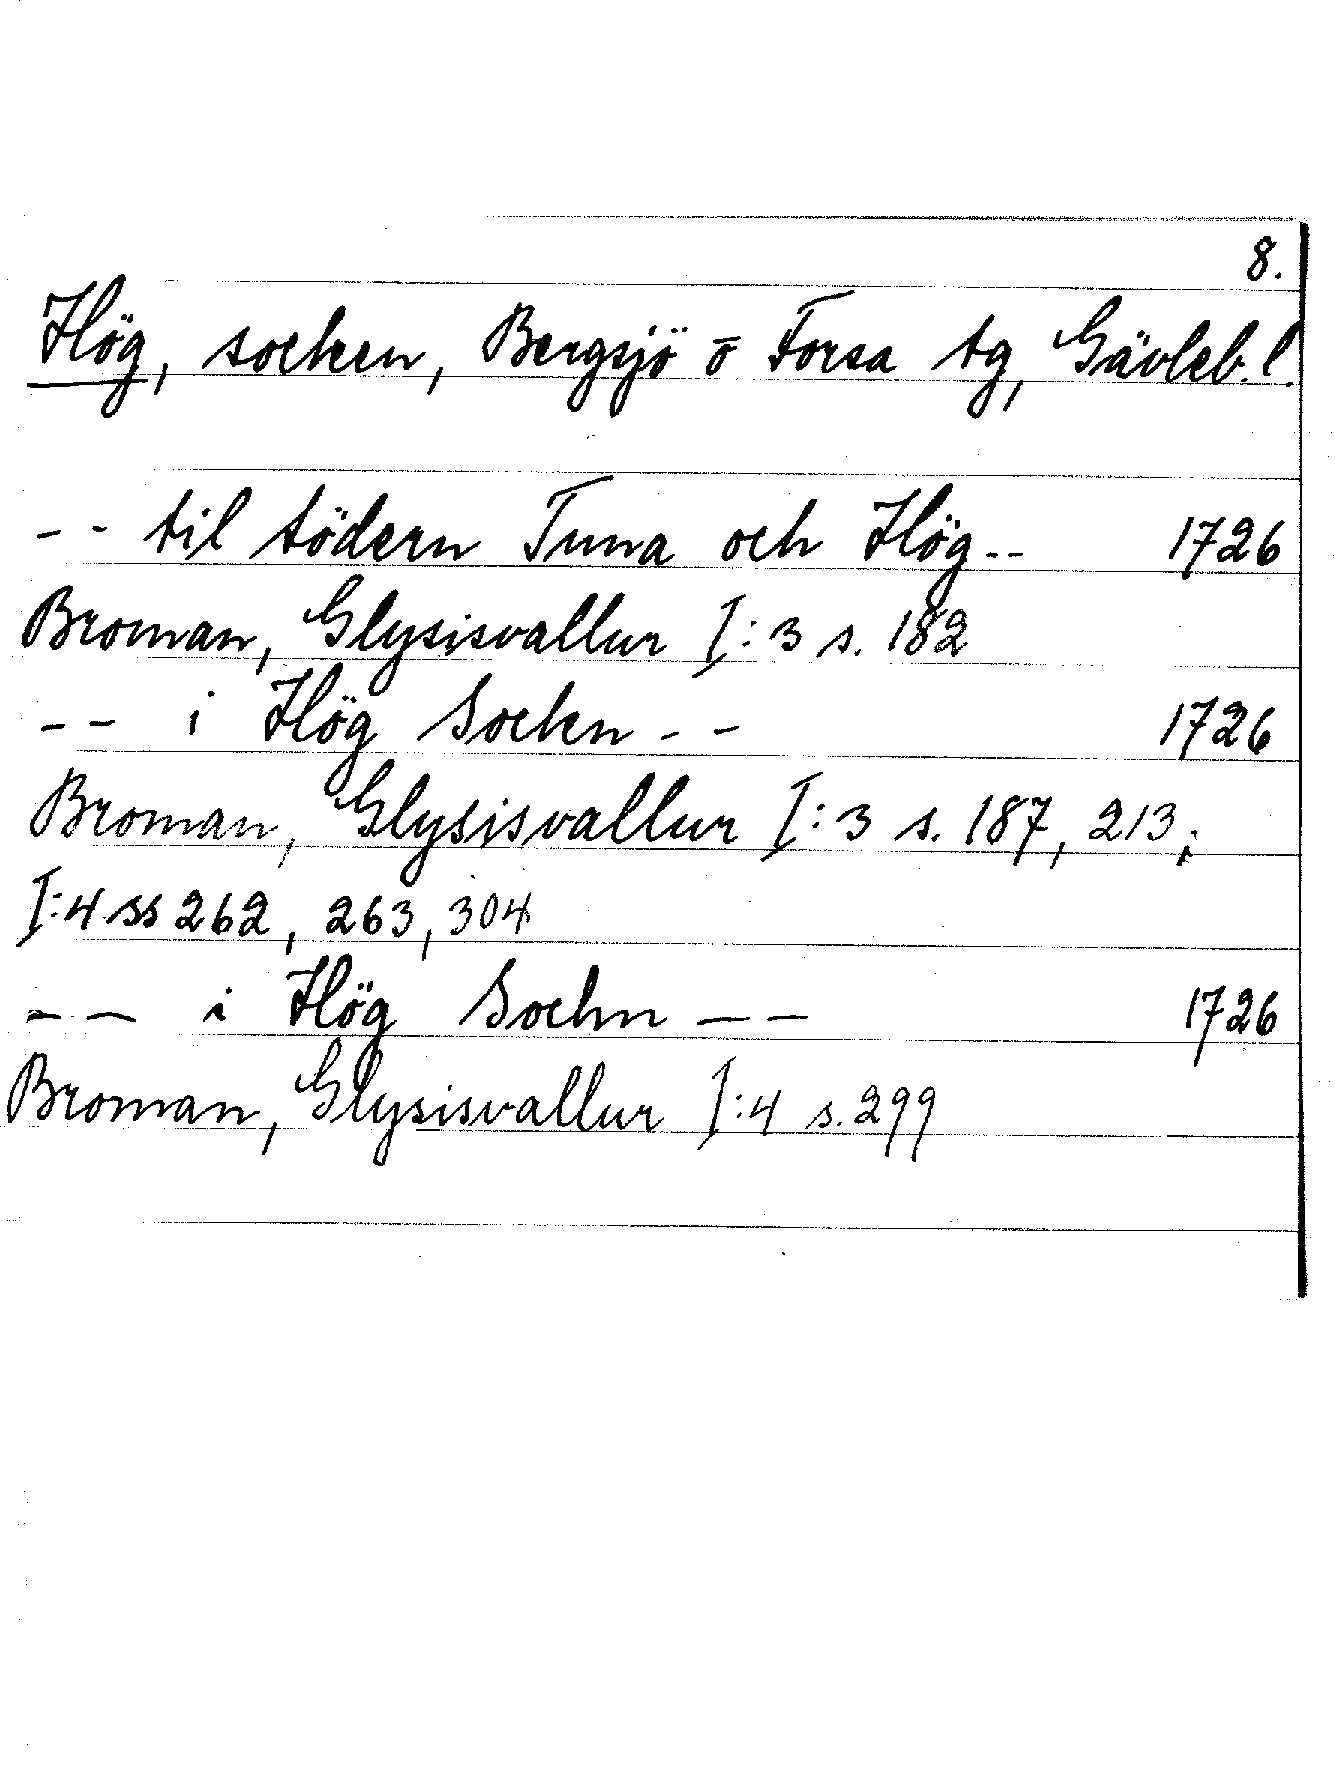 8.
Hög, socken, Bergsjö o Forsa tg, Gävleb. l.
-- til södern Tuna och Hög -- 1726
Broman, Glysisvallur I:3 s. 182
-- i Hög Sockn -- 1726
Broman, Glysisvallur I:3 s. 187, 213;
I:4 ss 262, 263, 304
-- i Hög Sochn -- 1726
Broman, Glysisvallur I:4 s. 299